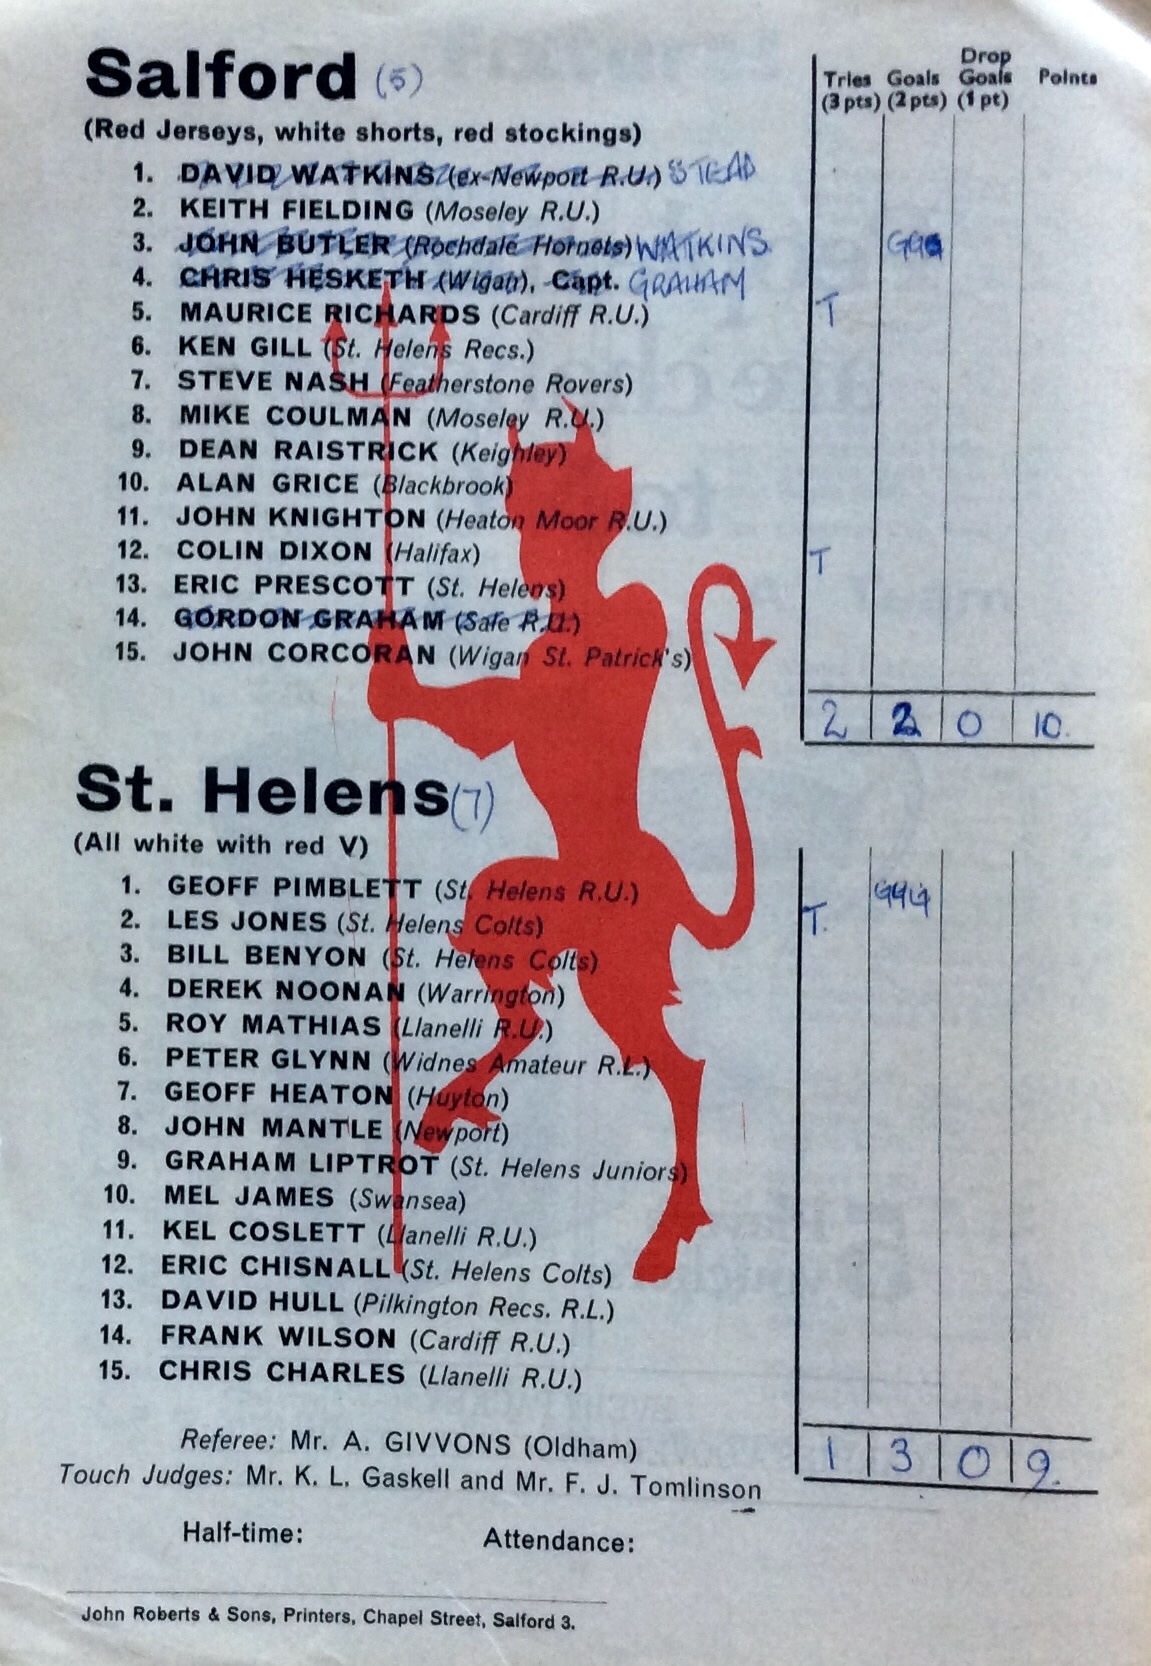 Salford (5)
(Red Jerseys, white shorts, red stockings)
Tries Goals Drop Goals Points
(3 pts) (2 pts) (1 pt)
1. DAVID WATKINS (ex-Newport R.U.) STEAD
2. KEITH FIELDING (Moseley R.U.)
3. JOHN BUTLER (Rochdale Hornets) WATKINS GG
4. CHRIS HESKETH (Wigan), Capt. GRAHAM
5. MAURICE RICHARDS (Cardiff R.U.) T
6. KEN GILL (St. Helens Recs.)
7. STEVE NASH (Featherstone Rovers)
8. MIKE COULMAN (Moseley R.U.)
9. DEAN RAISTRICK (Keighley)
10. ALAN GRICE (Blackbrook)
11. JOHN KNIGHTON (Heaton Moor R.U.)
12. COLIN DIXON (Halifax) T
13. ERIC PRESCOTT (St. Helens)
14. GORDON GRAHAM (Sale R.U.)
15. JOHN CORCORAN (Wigan St. Patrick's)
2 2 0 10.
St. Helens (7)
(All white with red V)
1. GEOFF PIMBLETT (St. Helens R.U.) GGG
2. LES JONES (St. Helens Colts) T.
3. BILL BENYON (St. Helens Colts)
4. DEREK NOONAN (Warrington)
5. ROY MATHIAS (Llanelli R.U.)
6. PETER GLYNN (Widnes Amateur R.L.)
7. GEOFF HEATON (Huyton)
8. JOHN MANTLE (Newport)
9. GRAHAM LIPTROT (St. Helens Juniors)
10. MEL JAMES (Swansea)
11. KEL COSLETT (Llanelli R.U.)
12. ERIC CHISNALL (St. Helens Colts)
13. DAVID HULL (Pilkington Recs. R.L.)
14. FRANK WILSON (Cardiff R.U.)
15. CHRIS CHARLES (Llanelli R.U.)
1 3 0 9.
Referee: Mr. A. GIVVONS (Oldham)
Touch Judges: Mr. K. L. Gaskell and Mr. F. J. Tomlinson
Half-time: Attendance:
John Roberts & Sons, Printers, Chapel Street, Salford 3.